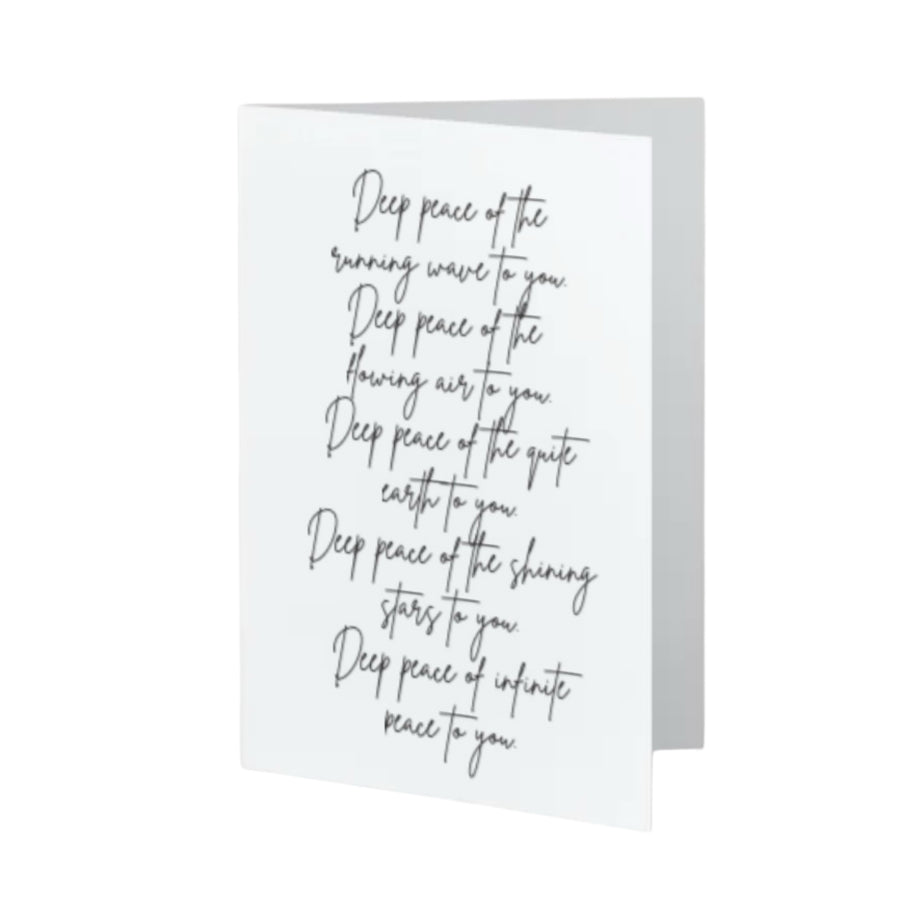 Deep peace of the
running wave to you.
Deep peace of the
flowing air to you.
Deep peace of the quite
earth to you.
Deep peace of the shining
stars to you.
Deep peace of infinite
peace to you.